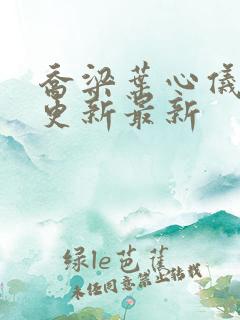 乔梁葉心儀
更新最新
绿le芭蕉
未经同意禁止转载